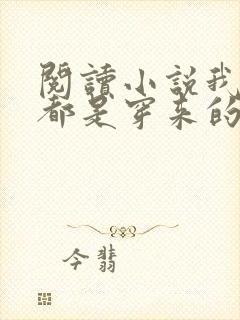 閱讀小說我
都是穿來的
今翡